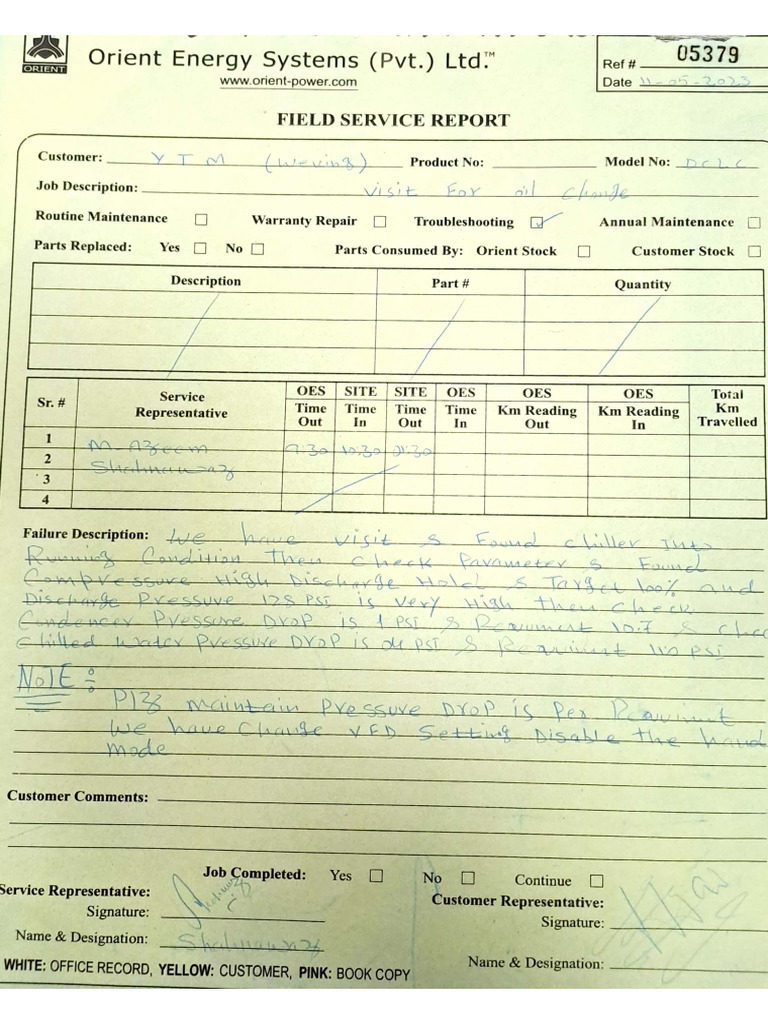 ORIENT
Orient Energy Systems (Pvt.) Ltd.™
www.orient-power.com
Ref # 05379
Date 11-05-2023
FIELD SERVICE REPORT
Customer: YTM (Weving) Product No: Model No: DCLC
Job Description: Visit For oil Change
Routine Maintenance ☐ Warranty Repair ☐ Troubleshooting ☑ Annual Maintenance ☐
Parts Replaced: Yes ☐ No ☐ Parts Consumed By: Orient Stock ☐ Customer Stock ☐
Description Part # Quantity
Sr. # Service Representative OES Time Out SITE Time In SITE Time Out OES Time In OES Km Reading Out OES Km Reading In Total Km Travelled
1
M-Azeem 9:30 10:30 01:30
2
Shahnawaz
3
4
Failure Description: We have visit & Found chiller Into
Running Condition Then check Parameter & Found
Compressure High Discharge Hold & Target 100% and
Discharge Pressure 128 PSI is very High then Check
Condencer Pressure Drop is 1 PSI & Requirment 10.7 & Chec
Chilled Water Pressure Drop is 04 PSI & Requirment PSI
NOTE:
Plz maintain Pressure Drop is Per Requirment
We have Change VFD Setting Disable the hand
mode
Customer Comments:
Job Completed: Yes ☐ No ☐ Continue ☐
Service Representative: Customer Representative:
Signature: Signature:
Name & Designation: Shahnawaz Name & Designation:
WHITE: OFFICE RECORD, YELLOW: CUSTOMER, PINK: BOOK COPY